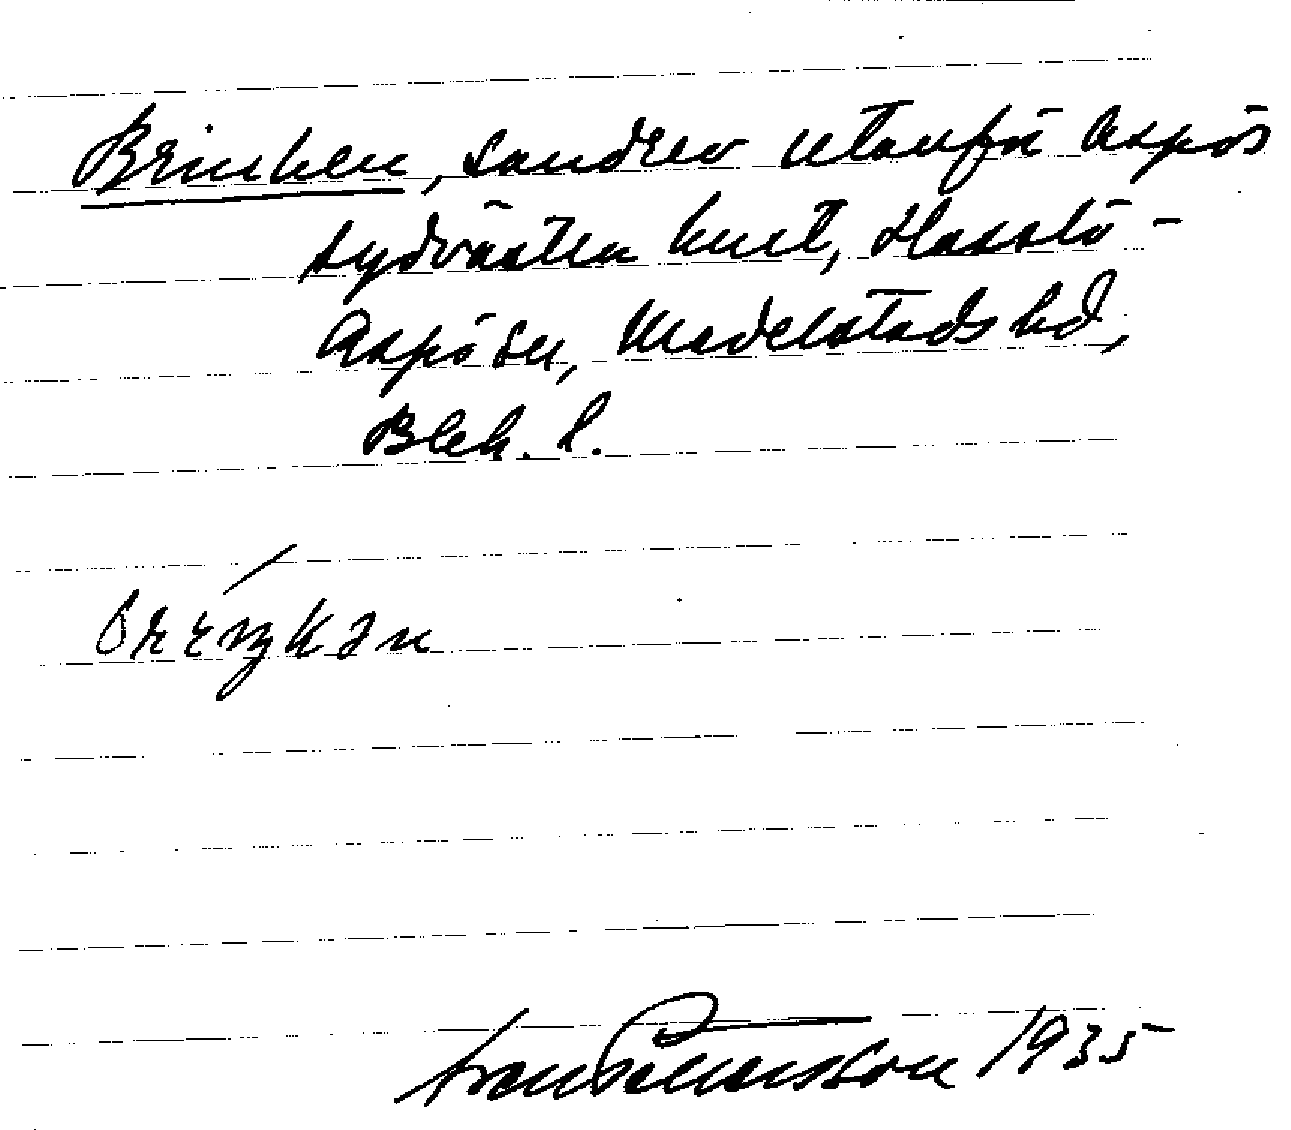 Brinken, sandrev utanför Aspös
sydvästra kust, Hasslö-
Aspö sn, Medelstads hd,
Blek. l.
Ivan Pettersson 1935